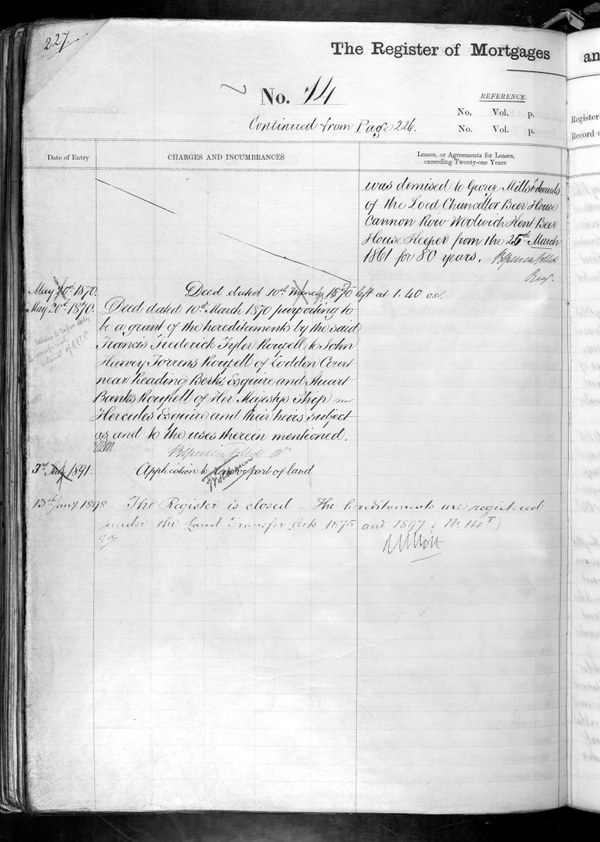 227
The Register of Mortgages
an
No. 14
REFERENCE.
No. Vol. p.
Continued from Page 226.
No. Vol. p.
Register
Record o
Date of Entry
CHARGES AND INCUMBRANCES
Leases, or Agreements for Leases,
exceeding Twenty-one Years
was demised to George Mills Edwards
of the Lord Chancellor Beer House
Cannon Row Woolwich Kent Beer
House Keeper from the 25th March
1861 for 80 years.
Reg.
May 20th 1870.
Deed dated 10th March 1870 left at 1.40 o.c.
May 20th 1870.
Deed dated 10th March 1870 purporting to
be a grant of the hereditaments by the said
Francis Frederick Tyler Rowsell to John
Harvey Torrens Rowsell of Loddon Court
near Reading Berks Esquire and Stuart
Banks Rowsell of Her Majestys Ship
Hercules Esquire and their heirs subject
as and to the uses therein mentioned.
3rd 1891.
Application to part of land
13th Jany 1898
The Register is closed - The hereditaments are registered
under the Land Transfer Acts 1875 and 1897